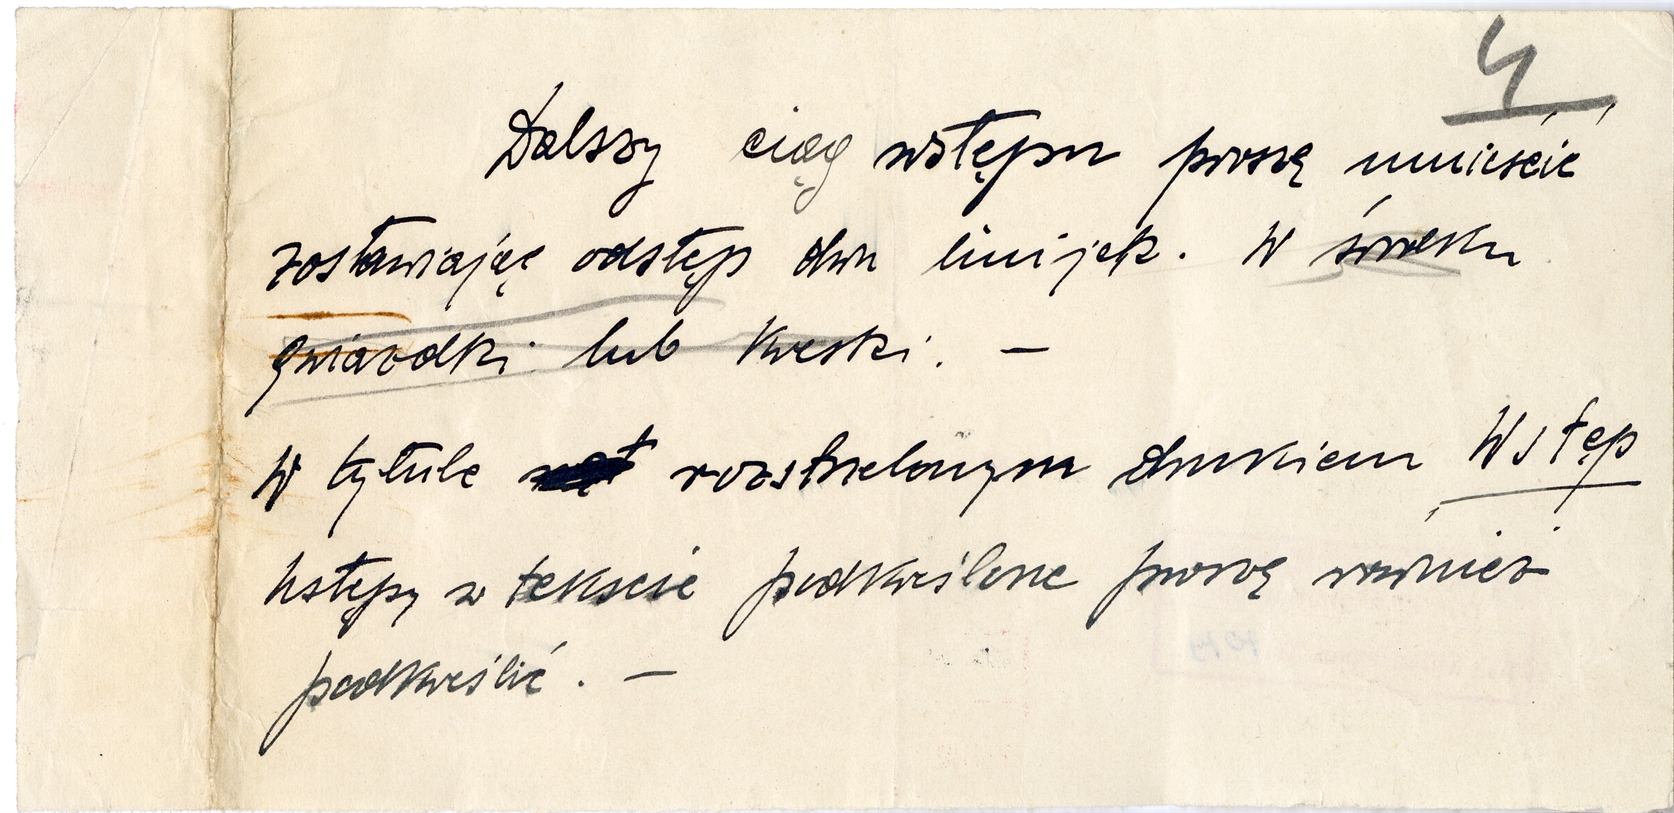 4
Dalszy ciąg wstępu proszę umieścić
zostawiając odstęp dwu linijek. W środku
gwiazdki lub kreski. —
W tytule rozstrzelonym drukiem Wstęp
Ustępy w tekście podkreślone proszę również
podkreślić. —